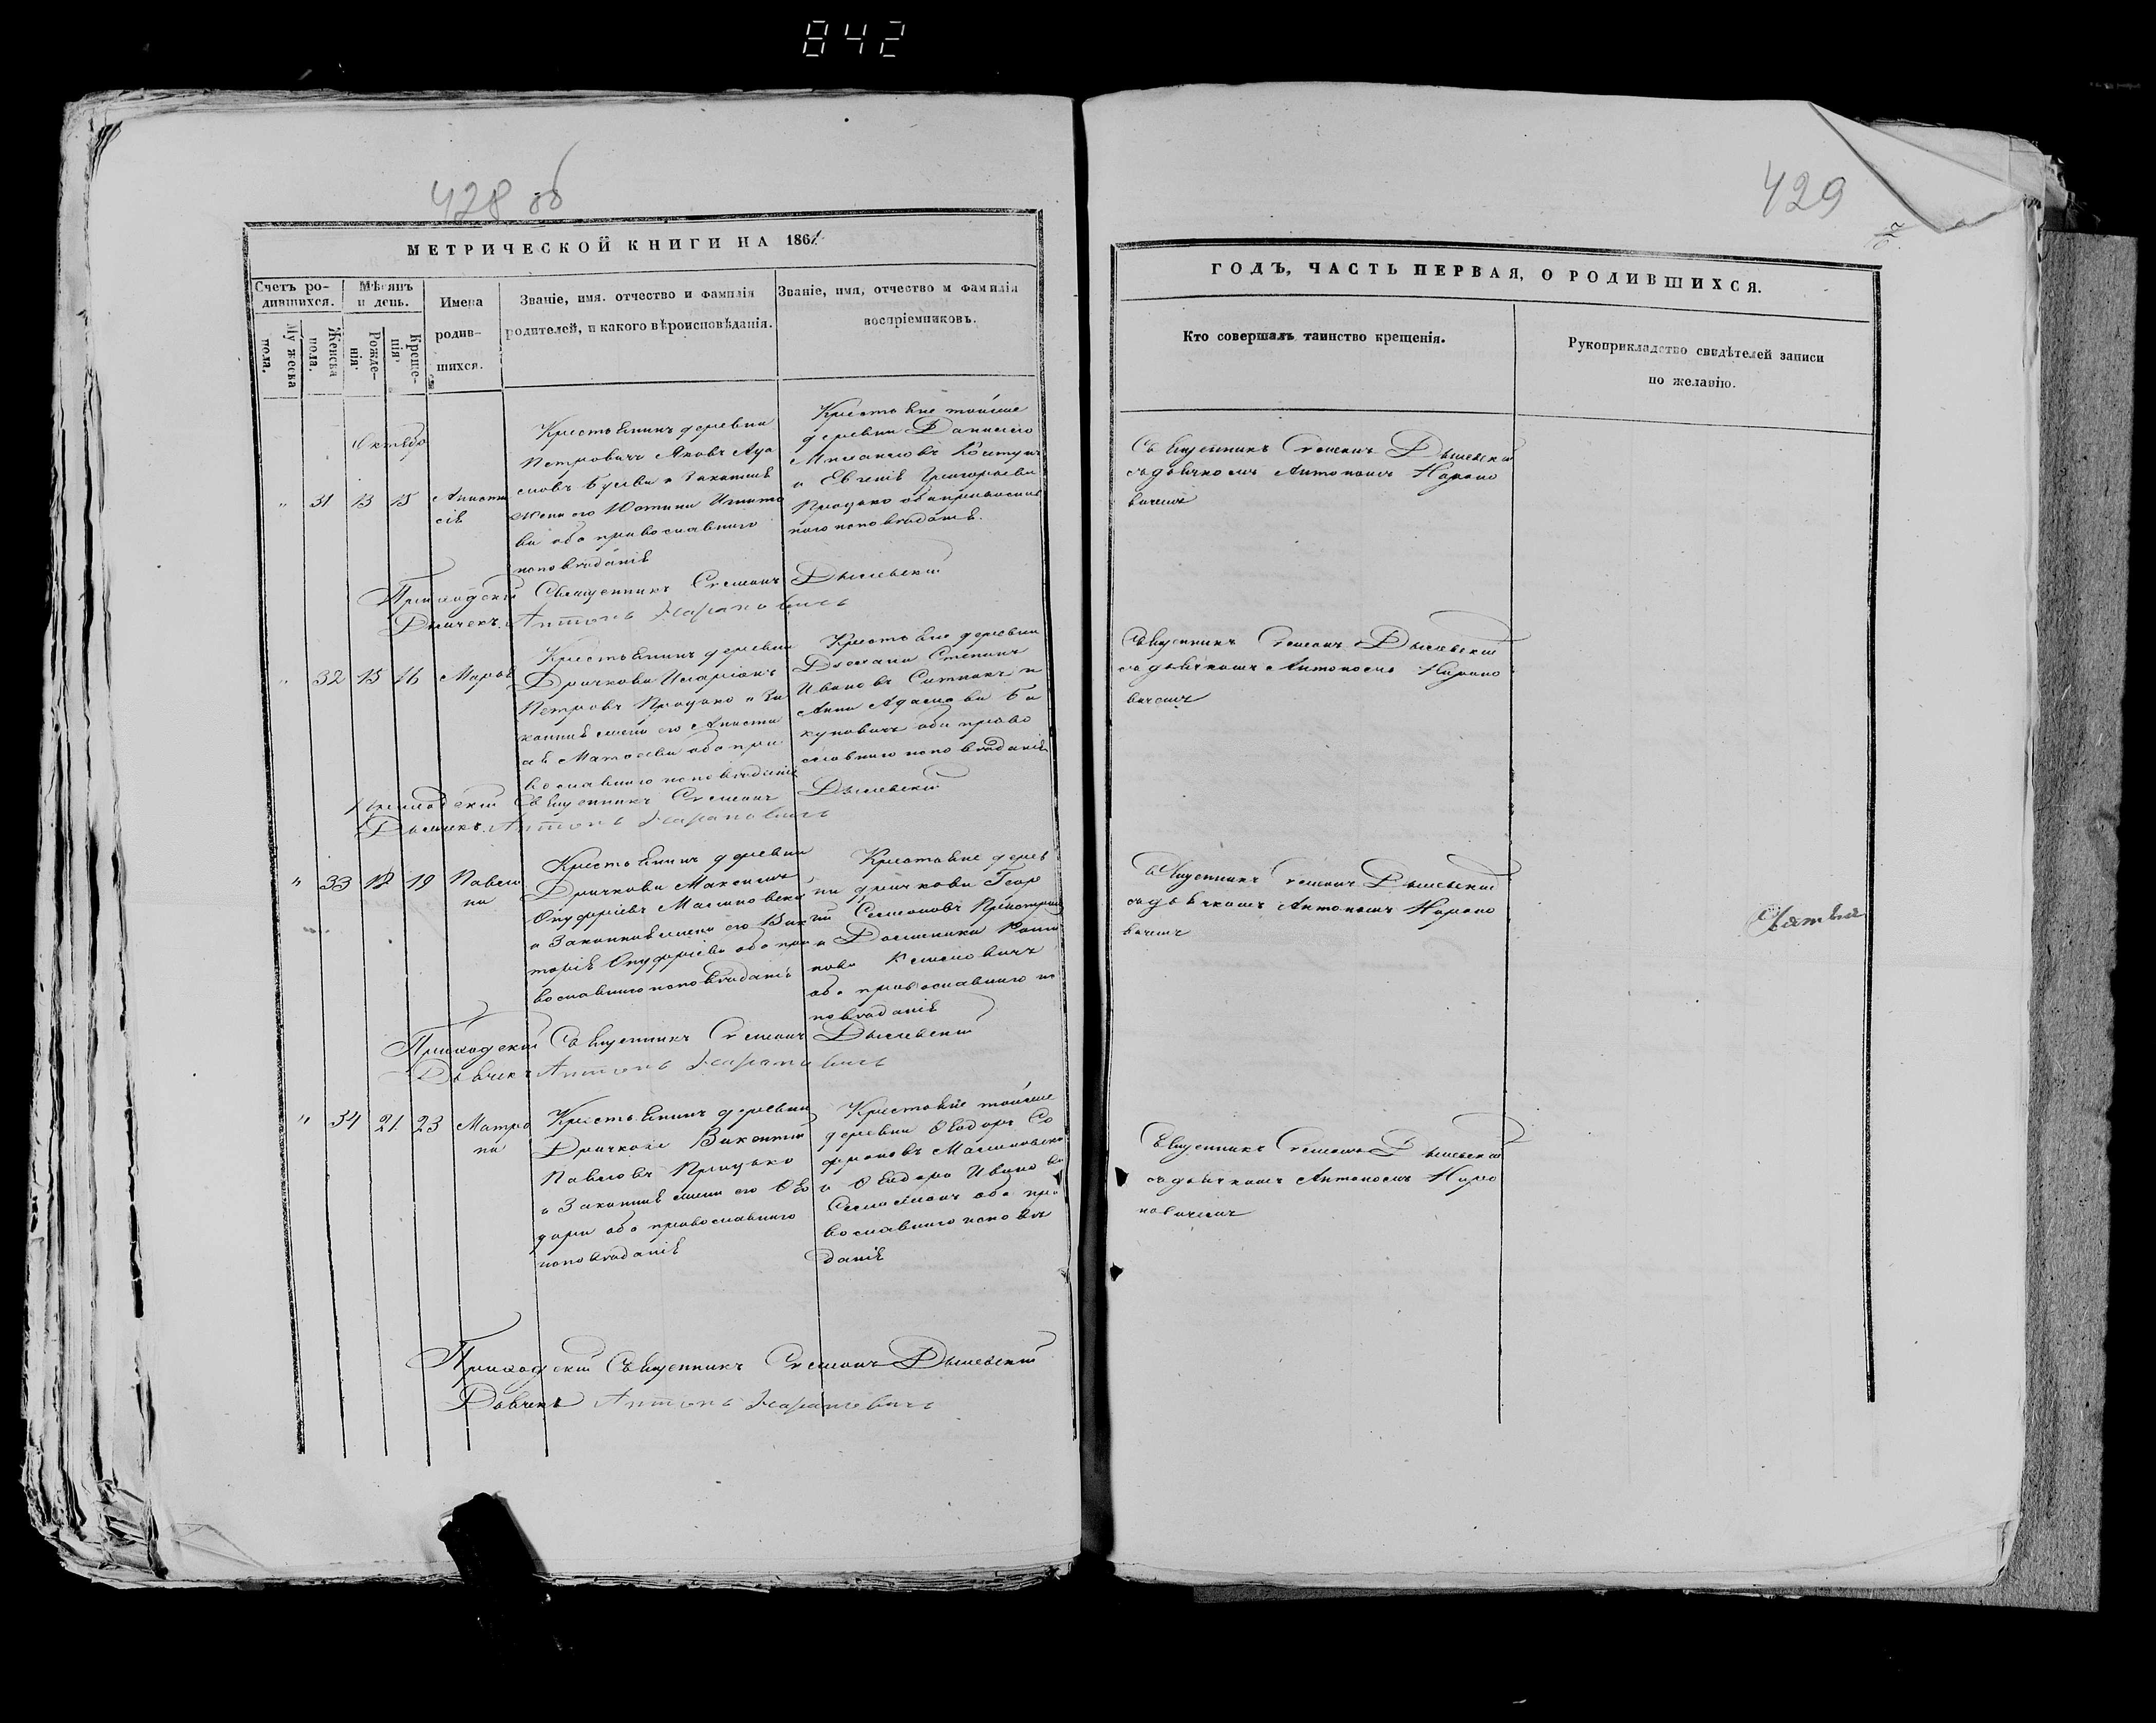 842
428 об
МЕТРИЧЕСКОЙ КНИГИ НА 1861
Счетъ ро-
дившихся.
Мѣсяцъ
и день.
Мужеска
пола.
Женска
пола.
Рожде-
нія
Креще-
нія
Имена
родив-
шихся.
Званіе, имя. отчество и фамилія
родителей, и какого вѣроисповѣданія.
Званіе, имя, отчество и фамилія
воспріемниковъ.
Октябр
" 31 13 15
Анаста
сія
Крестьянинъ деревни
Петровичъ Яковъ
и законная
жена его
ва оба православнаго
исповѣданія
Крестьяне тойже
деревни
и Евгенія Григорьева
Процько оба православ
наго исповѣданія.
Приходскій Священникъ Симеонъ Дылевскій
Дьячекъ Антонъ Нарановичъ
" 32 15 16
Марія
Крестьянинъ деревни
Дричкова Иларіонъ
Петровъ Процько и за
конная жена его Анаста
сія Матѳеева оба пра
вославнаго исповѣданія
Крестьяне деревни
Степанъ
Ивановъ Ситникъ и
Анна Адамова Ба
куновичъ оба право
славнаго исповѣданія
Приходскій Священникъ Симеонъ Дылевскій
Дьячекъ Антонъ Нарановичъ
" 33 19
Павли
на
Крестьянинъ деревни
Дричкова Максимъ
Онуфріевъ Малиновскій
и Законная жена его Вик
торія Онуфріева оба пра
вославнаго исповѣданія
Крестьяне дерев
ни дричкова Геор
гій Семеоновъ
и Доминика
нова
оба православнаго ис
повѣданія
Приходскій Священникъ Симеонъ Дылевскій
Дьячекъ Антонъ Нарановичъ
" 34 21 23
Матро
на
Крестьянинъ деревни
Дричкова Викентій
Павловъ Процько
и Законная жена его Ѳео
дора оба православнаго
исповѣданія
Крестьяне тойже
деревни Ѳеодоръ Со
фроновъ Малиновскій
и Ѳеодора Иванова
оба пра
вославнаго исповѣ
данія
Приходскій Священникъ Симеонъ Дылевскій
Дьячекъ Антонъ Нарановичъ
429
ГОДЪ, ЧАСТЬ ПЕРВАЯ, О РОДИВШИХСЯ.
Кто совершалъ таинство крещенія.
Рукоприкладство свидѣтелей записи
по желанію.
Священникъ Симеонъ Дылевскій
съ дьячкомъ Антономъ Нарано
вичемъ
Священникъ Симеонъ Дылевскій
съ дьячкомъ Антономъ Нарано
вичемъ
Священникъ Симеонъ Дылевскій
съ дьячкомъ Антономъ Нарано
вичемъ
Священникъ Симеонъ Дылевскій
съ дьячкомъ Антономъ Нара
новичемъ